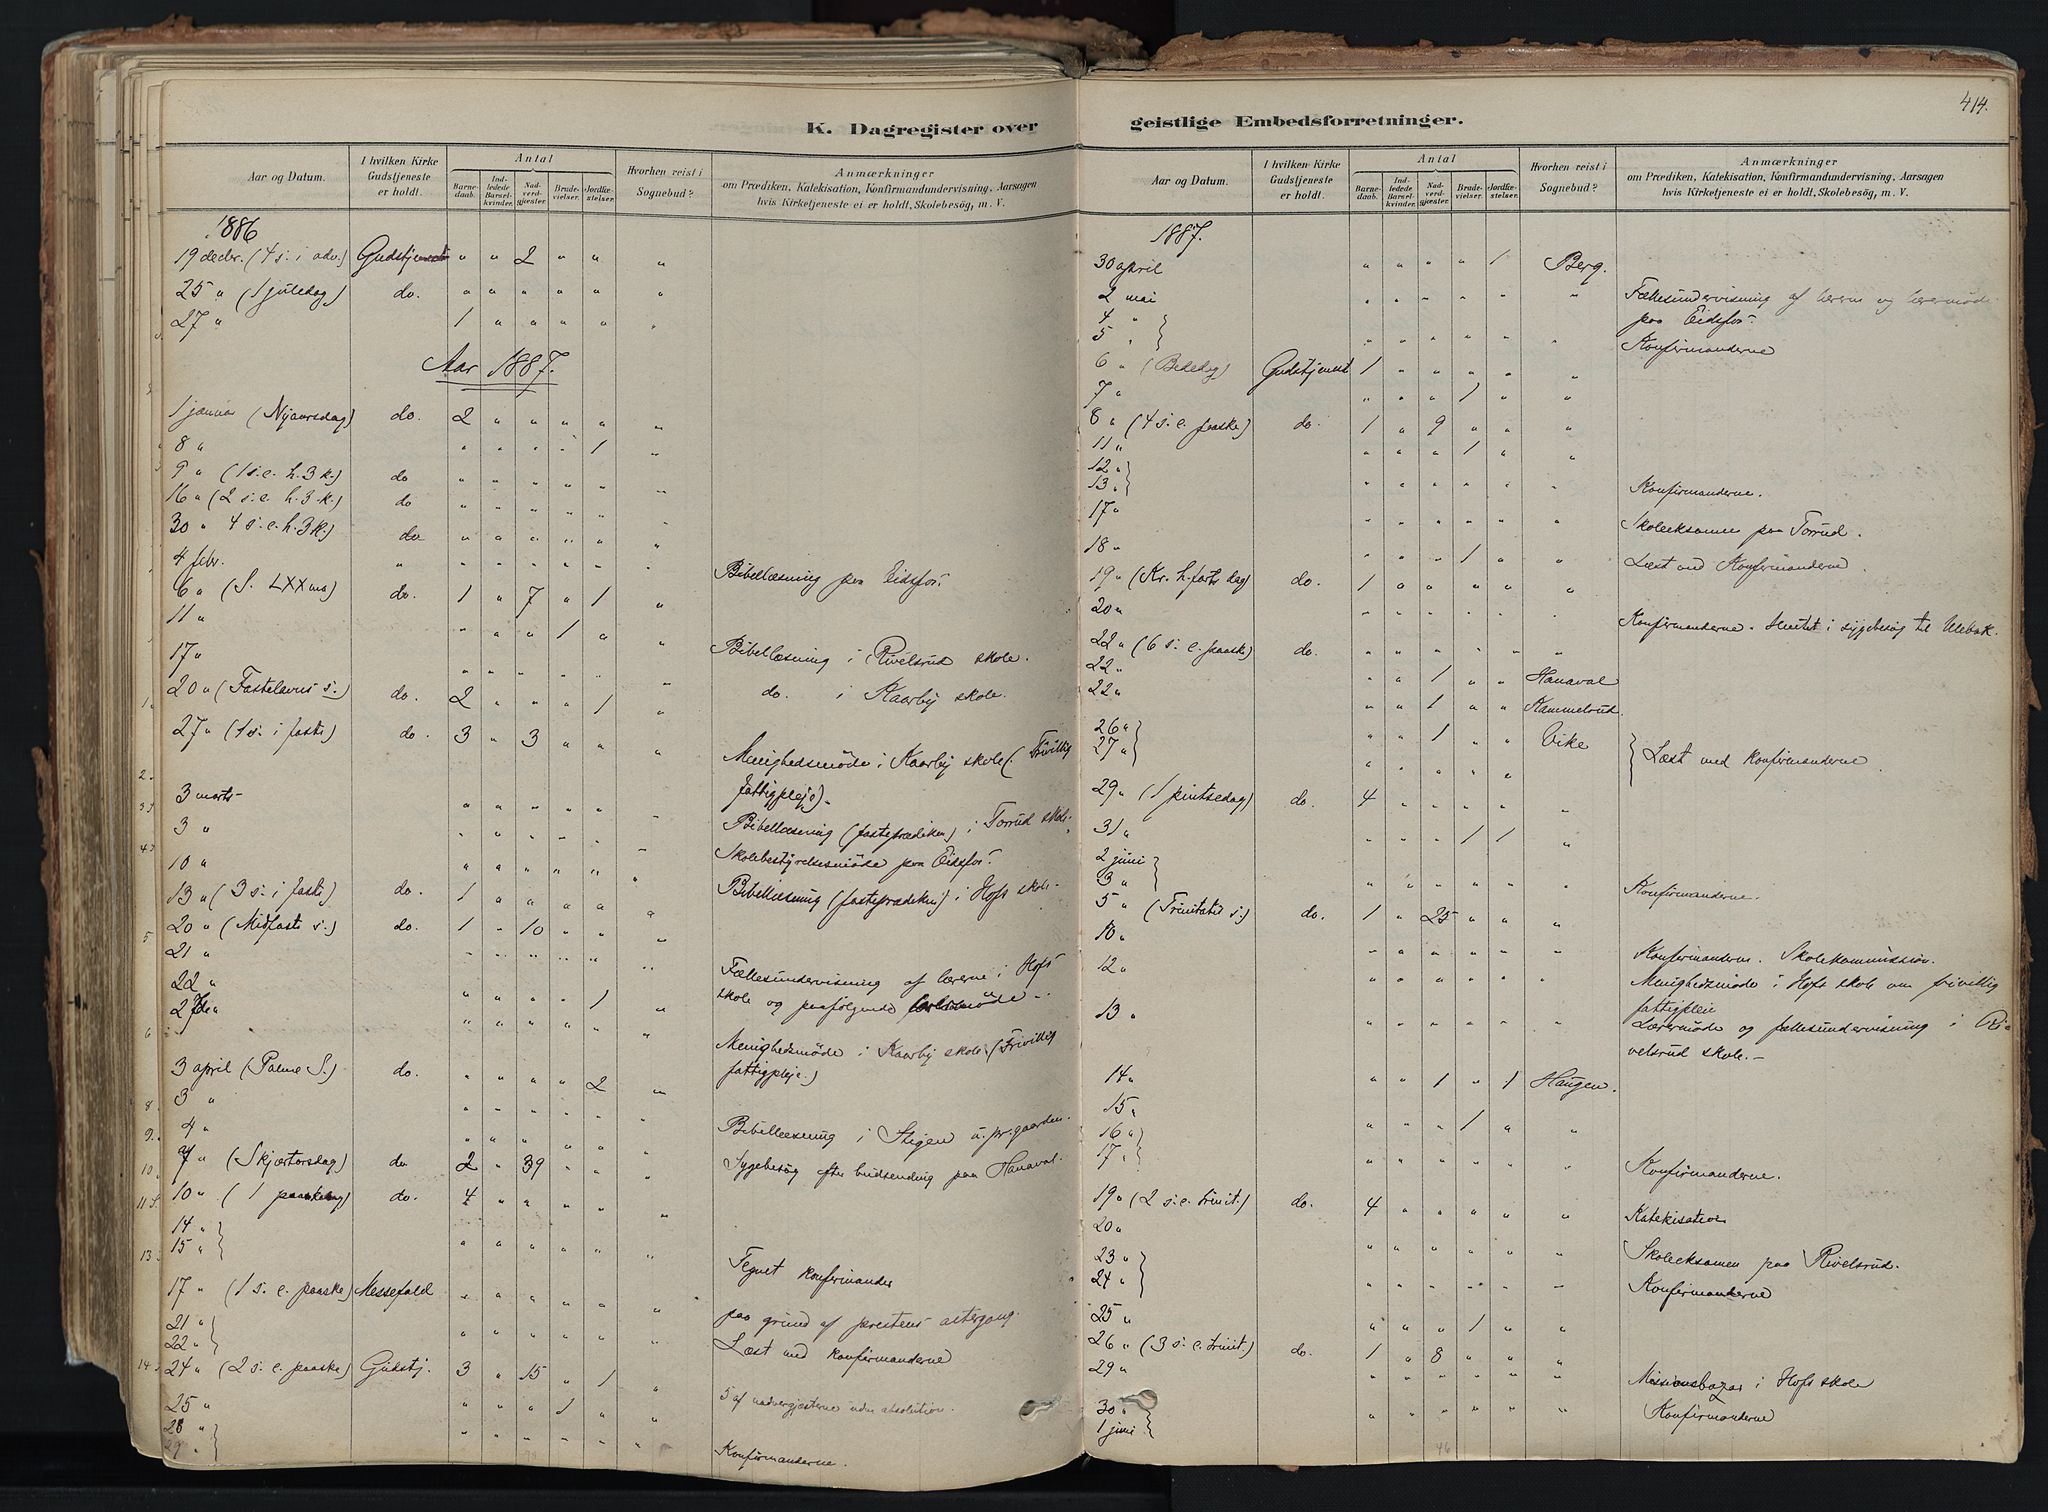 414.
K. Dagregister over geistlige Embedsforretninger.
Aar og Datum. I hvilken Kirke Gudstjeneste er holdt. Antal Barnedaab. Indledede Barselkvinder. Nadverdgjæster. Brudevielser. Jordfæstelser. Hvorhen reist i Sognebud? Anmærkninger om Prædiken, Katekisation, Konfirmandundervisning, Aarsagen hvis Kirketjeneste ei er holdt, Skolebesög, m. V.
1886
19 decbr. (4 s. i adv.) Gudstjeneste " " 2 " " "
25 " (1 juledag) do. " " " " " "
27 " 1 " " " " "
Aar 1887.
1 januar (Nyaarsdag) do. 2 " " " " "
8 " " " " " 1 "
9 " (1 s. e. h. 3 k.) do " " " " " "
16 " (2 s. e. h. 3 k.) do " " " " " "
30 " 4 s. e. h. 3 k.) do " " " " " "
4 febr. " " " " " " Bibellæsning paa Eidsfos.
6 " (S. LXXms) do. 1 " 7 " 1 "
11 " " " " 1 " "
17 " " " " " " " Bibellæsning i Rivelsrud skole.
20 " (Fastelavns s.) do. 2 " " " 1 " do. i Kaarby skole.
27 " (1 s. i faste) do. 3 " 3 " " "
3 marts " " " " " " Menighedsmöde i Kaarby skole (Frivillig
fattigpleje).
3 " " " " " " " Bibellæsning (fasteprædiken) i Torrud skole.
10 " " " " " " " Skolebestyrelsesmöde paa Eidsfos.
13 " (3 s. i faste) do. 1 " " " " " Bibellæsning (fasteprædiken) i Hofs skole.
20 " (Midfaste s.) do. 1 " 10 " " "
21 " " " " " " " Fællesundervisning af lærerne i Hofs
skole og paafølgende lærermöde
22 " " " " " 1 "
" " " " " " Menighedsmöde i Kaarby skole (Frivillig
fattigpleje.)
3 april (Palme S.) do. " " " " 2 "
3 " " " " " " " Bibellæsning i Stigen u. pr.gaarden.
4 " " " " " " " Sygebesög efter budsending paa Hanaval.
7 " (Skjærtorsdag) do 2 " 39 " " "
10 " (1 paaskedag) do. 4 " " " " "
14 "
15 " } " " " " " " Tegnet konfirmander
17 " (1 s. e. paaske) Messefald " " " " " " paa grund af prestens astergang.
21 "
22 " } " " " " " " Læst med konfirmanderne
24 " (2 s. e. paaske) Gudstj. 3 " 15 " 1 " 5 af nadvergjæsterne uden absolution.
25 " " " " 1 " "
28 "
29 " } " " " " " " Konfirmanderne.
Aar og Datum. I hvilken Kirke Gudstjeneste er holdt. Antal Barnedaab. Indledede Barselkvinder. Nadverdgjæster. Brudevielser. Jordfæstelser. Hvorhen reist i Sognebud? Anmærkninger om Prædiken, Katekisation, Konfirmandundervisning, Aarsagen hvis Kirketjeneste ei er holdt, Skolebesög, m. V.
1887.
30 april " " " " 1 Berg.
2 mai " " " " " " Fællesundervisning af lærerne og lærermöde
paa Eidsfos.
4 "
5 " } " " " " " " Konfirmanderne
6 " (Bededag) Gudstjenest 1 " " " " "
7 " " " " 1 " "
8 " (4 s. e. paaske) do. 1 " 9 " " "
11 " " " " 1 " "
12 "
13 " } " " " " " " Konfirmanderne.
17 " " " " " " " Skoleeksamen paa Torrud.
18 " " " " 1 " " Læst med Konfirmanderne.
19 " (Kr. h.farts dag) do. 1 " " " " "
20 " " " " " " " Konfirmanderne. Hentet i sygebesög til Ulebak.
22 " (6 s. e. paaske) do. " " " " " "
22 " " " 1 " " Hanaval
22 " " " 1 " " Kammelsrud.
" " 1 " " Vike
26 "
27 " } " " " " " } Læst med konfirmanderne.
29 " (1 pintsedag) do. 4 " " " " "
31 " " " " 1 1 "
2 juni
3 " } " " " " " " Konfirmanderne.
5 " (Trinitatis s.) do. 1 " 25 " " "
10 " " " " " " " Konfirmanderne. Skolekommission.
12 " " " " " " " Menighedsmöde i Hofs skole om frivillig
fattigpleie
13 " " " " " " " Lærermöde og fællesundervisning i Ri-
velsrud skole.
14 " " " 1 " 1 Haugen.
15 " " " " 1 " "
16 "
17 " } " " " " " " Konfirmanderne.
19 " (2 s. e. trinit.) do. 4 " " " " " Katekisation
20 " " " " " " " Skoleeksamen paa Rivelsrud.
23 "
24 " } " " " " " " Konfirmanderne
25 " " " " 1 " "
26 " (3 s. e. trinit.) do. 1 " 8 " " "
29 " " " " " " " Missionsbazar i Hofs skole
30 "
1 juni } " " " " " " Konfirmanderne
46